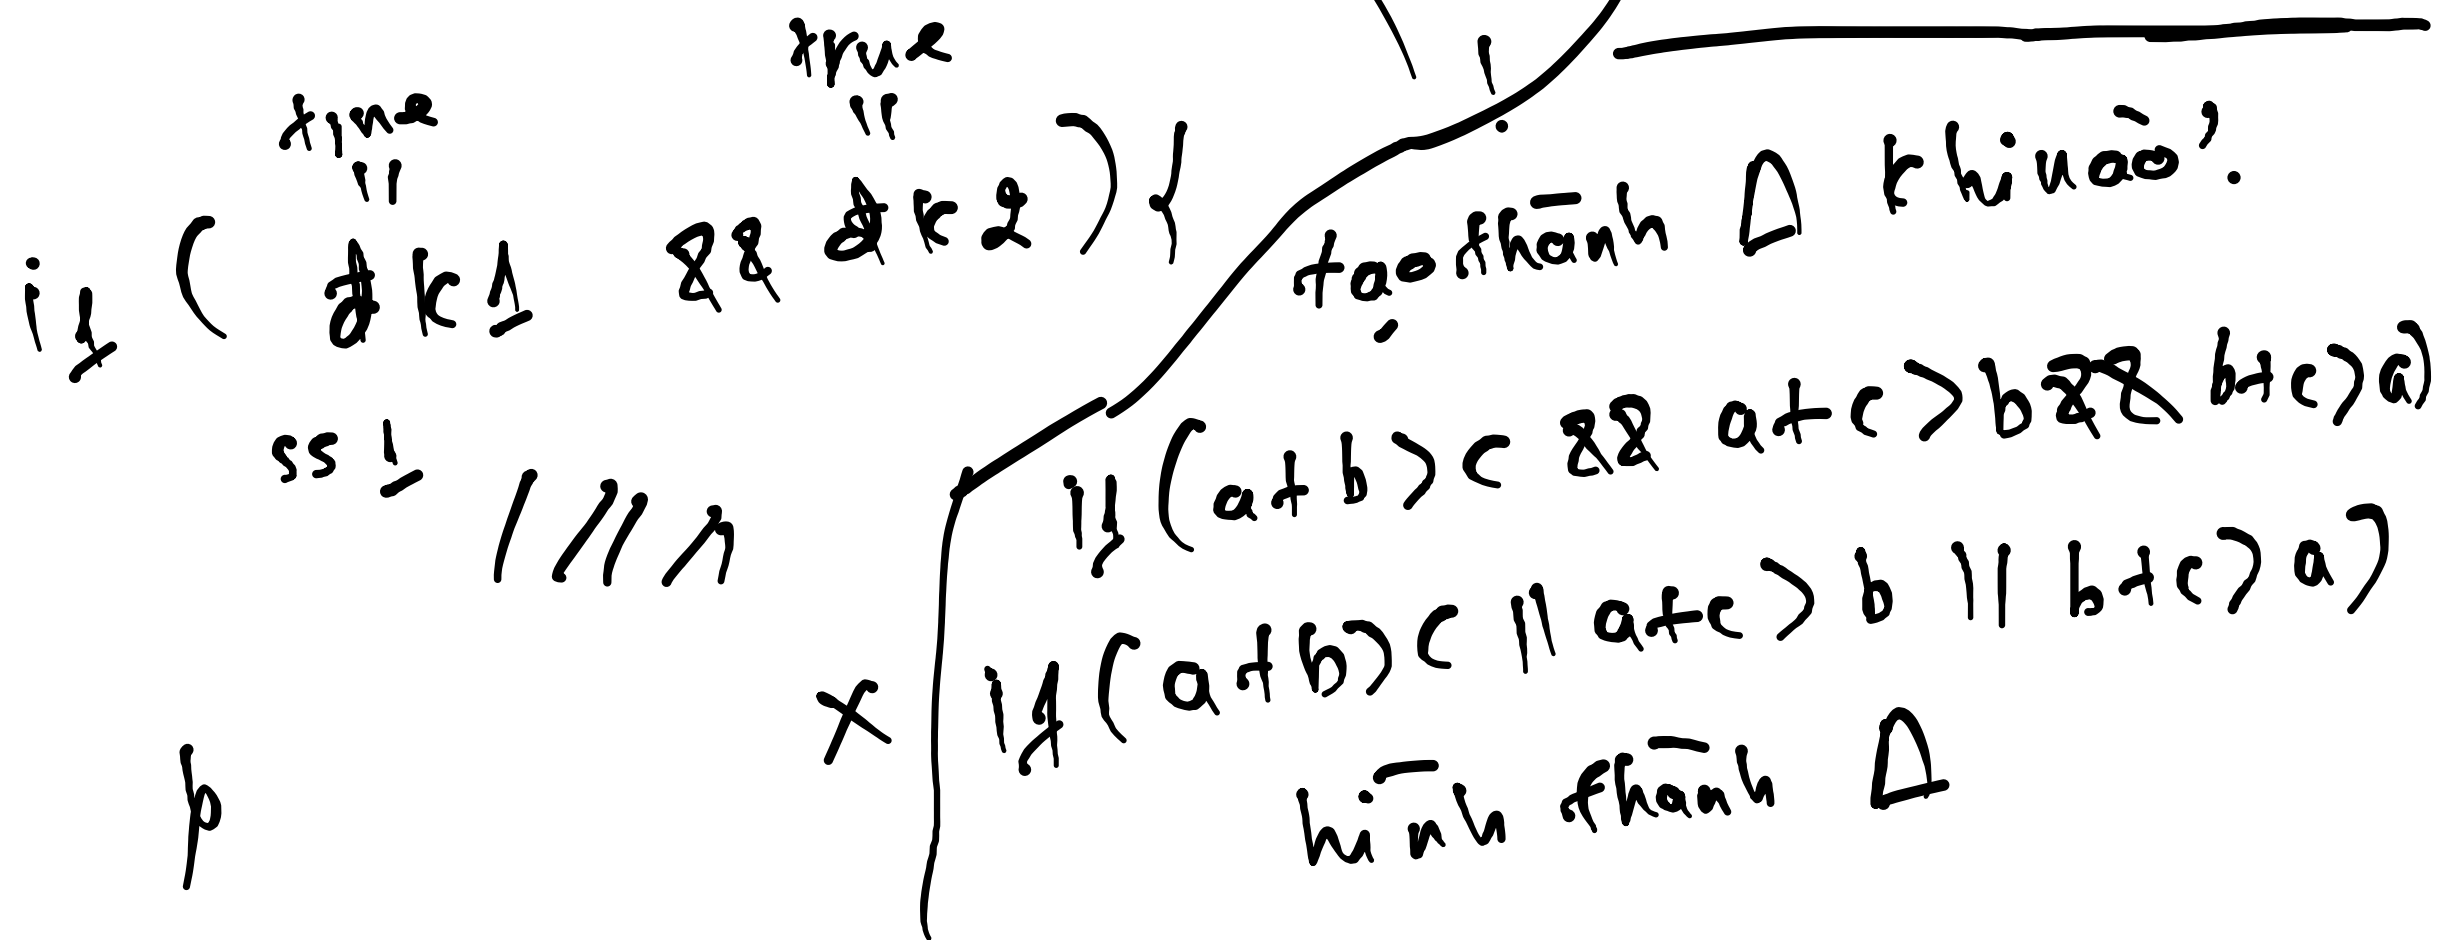 true true
if ( đk1 && đk2 ) {
ss1
tạo thành Δ khi nào?
if (a+b > c && a+c > b && b+c > a)
x if (a+b > c || a+c > b || b+c > a)
hình thành Δ
p